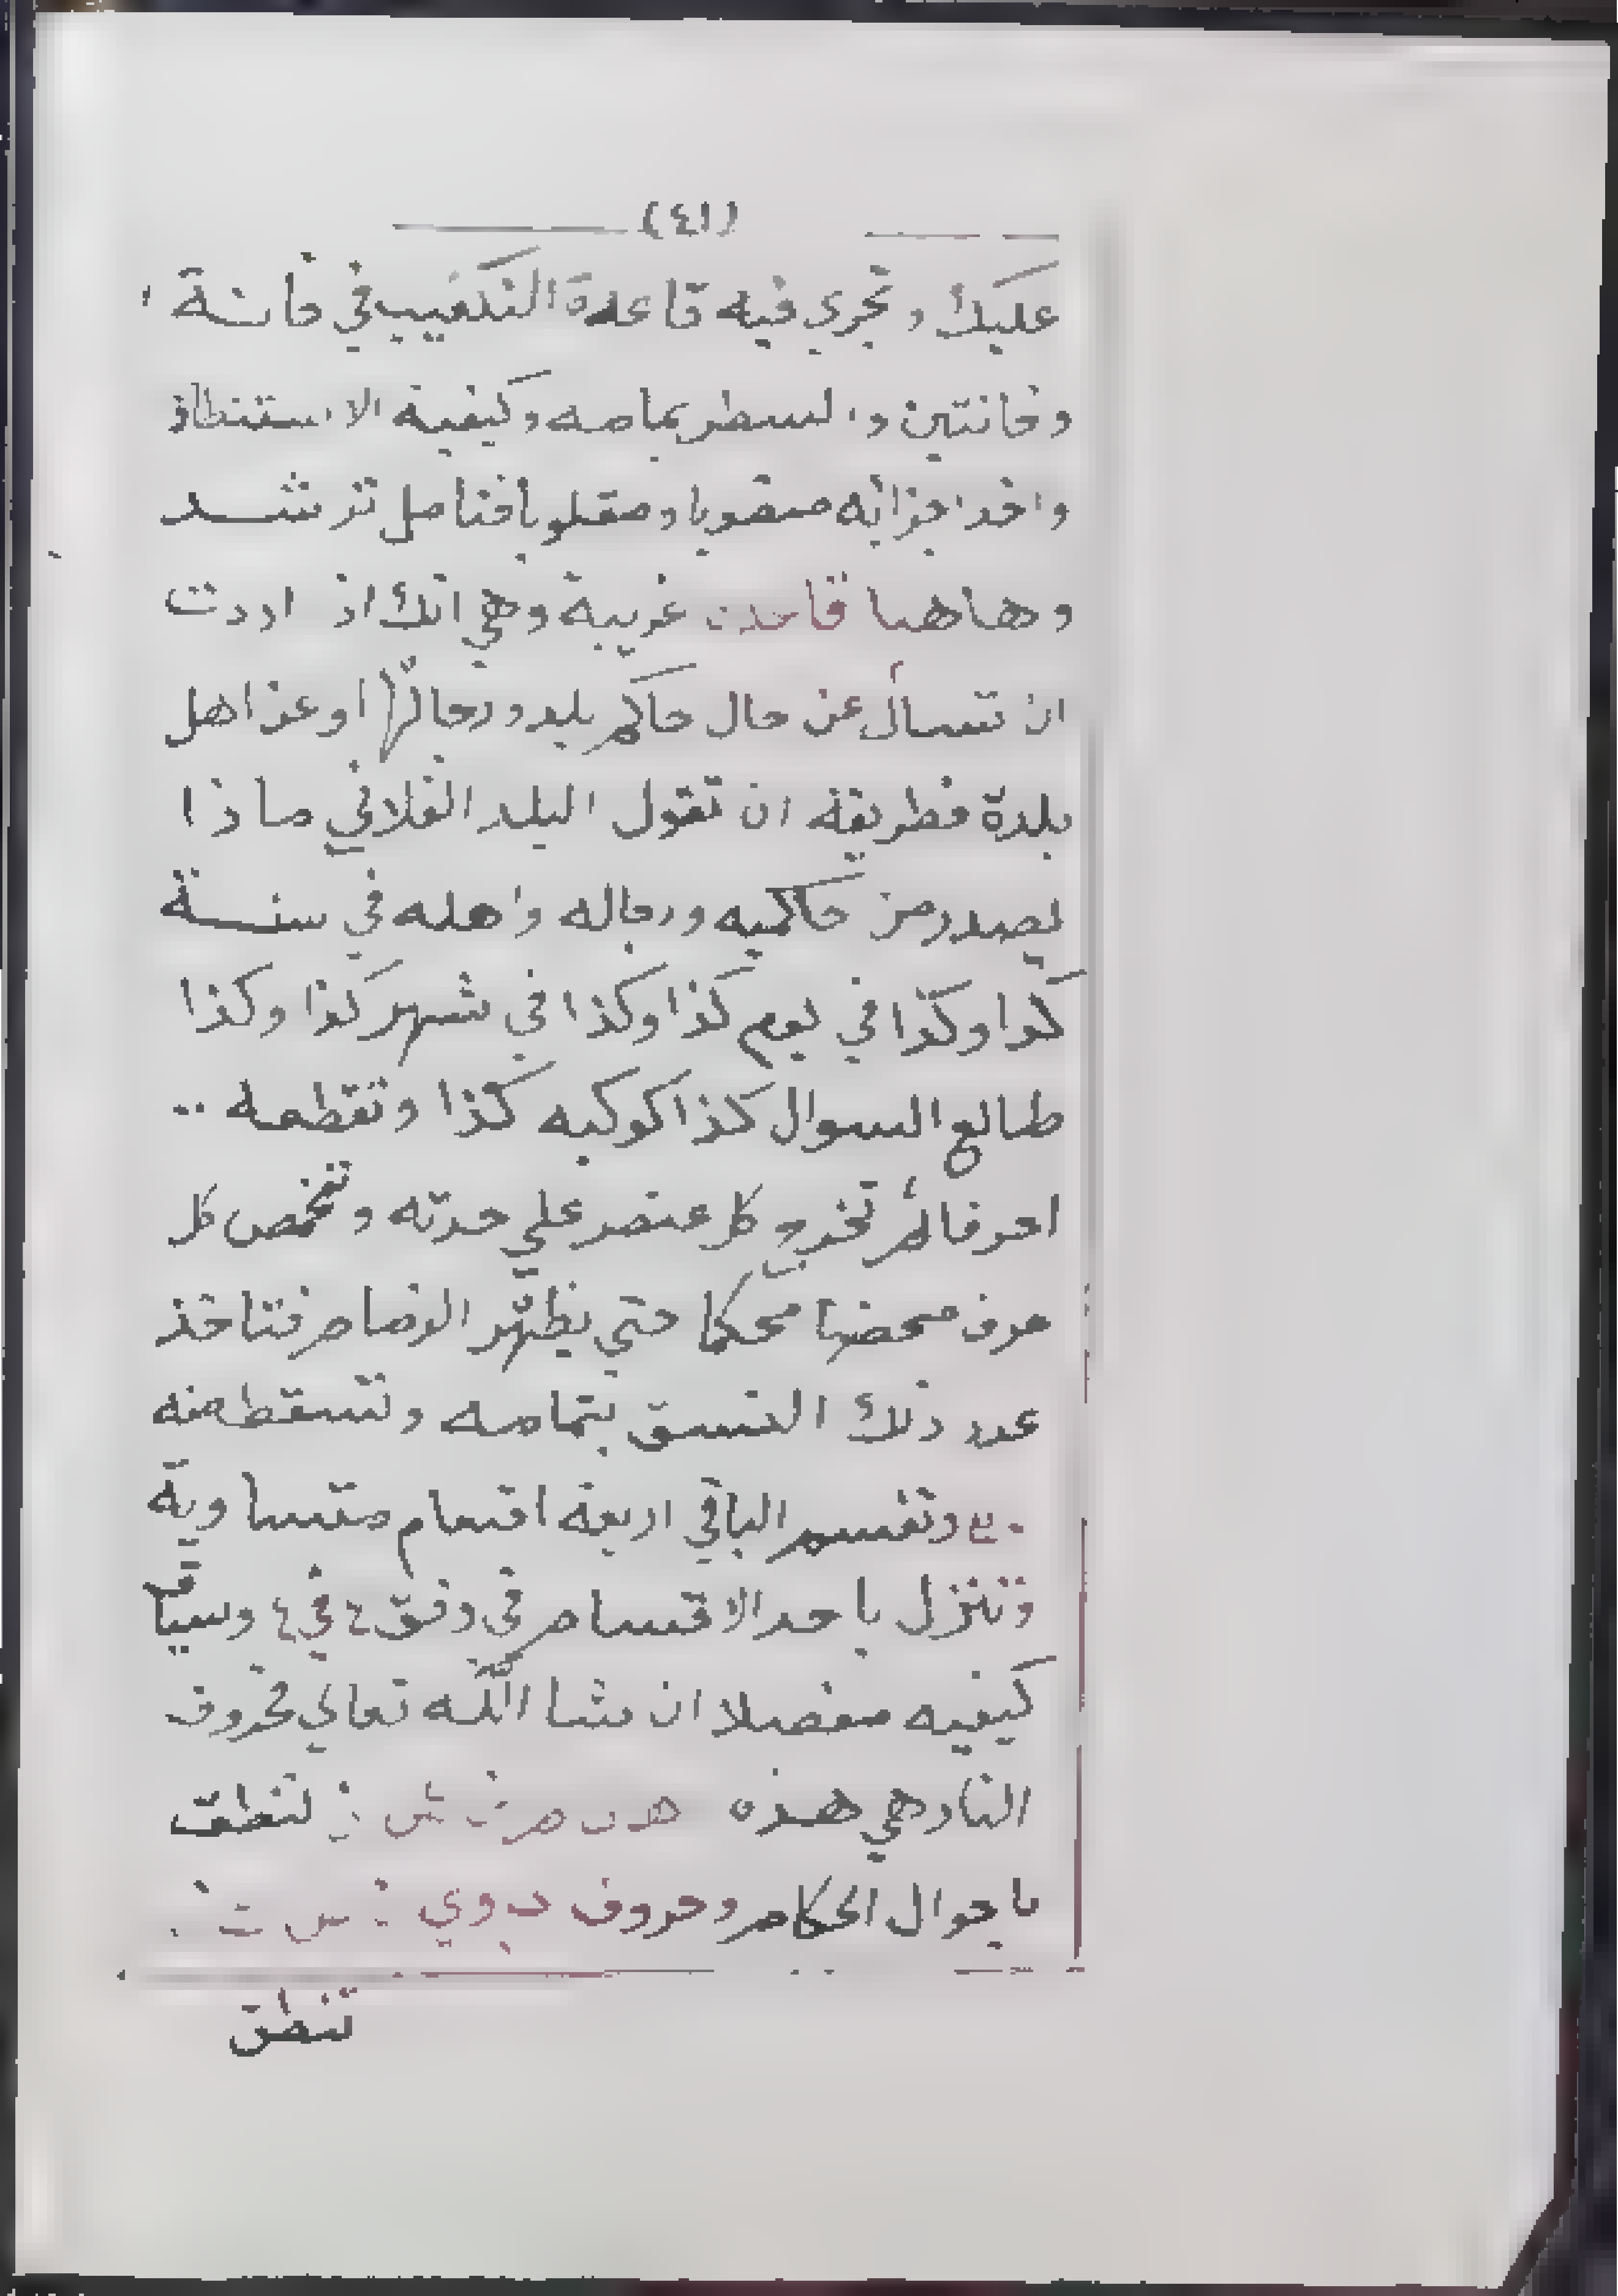 (٤١)
عليك وتجري فيه قاعدة التكعيب في خانة
وخانتين والسطر بمامه وكيفية الاستنطاق
واخذ اجزائه منقوبا ومقلوبا فتامل ترشد
وهاهنا قاعدة غريبة وهي انك اذ اردت
ان تسأل عن حال حاكم بلد ورجالها او عن اهل
بلدة فطريقه ان تقول البلد الفلاني ماذا
يصدر من حاكميه ورجاله واهله في سنة
كذا وكذا في يوم كذا وكذا في شهر كذا وكذا
طالع السوال كذا كوكبه كذا وتقطعه
احرفا ثم تخرج كل عنصر على حدته وتمخص كل
حرف محكا حتي يظهر فتاخذ
عدد ذلك النسق بتمامه وتسقط منه
وتقسم الباقي اربعة اقسام متساوية
وتنزل باحد الاقسام في وفق ٤ في ٤ وسياتي
كيفيه مفصلا ان شا الله تعالي فحروف
النار هي هذه لتنطق
باحوال الحكام وحروف ب وي
تنطق